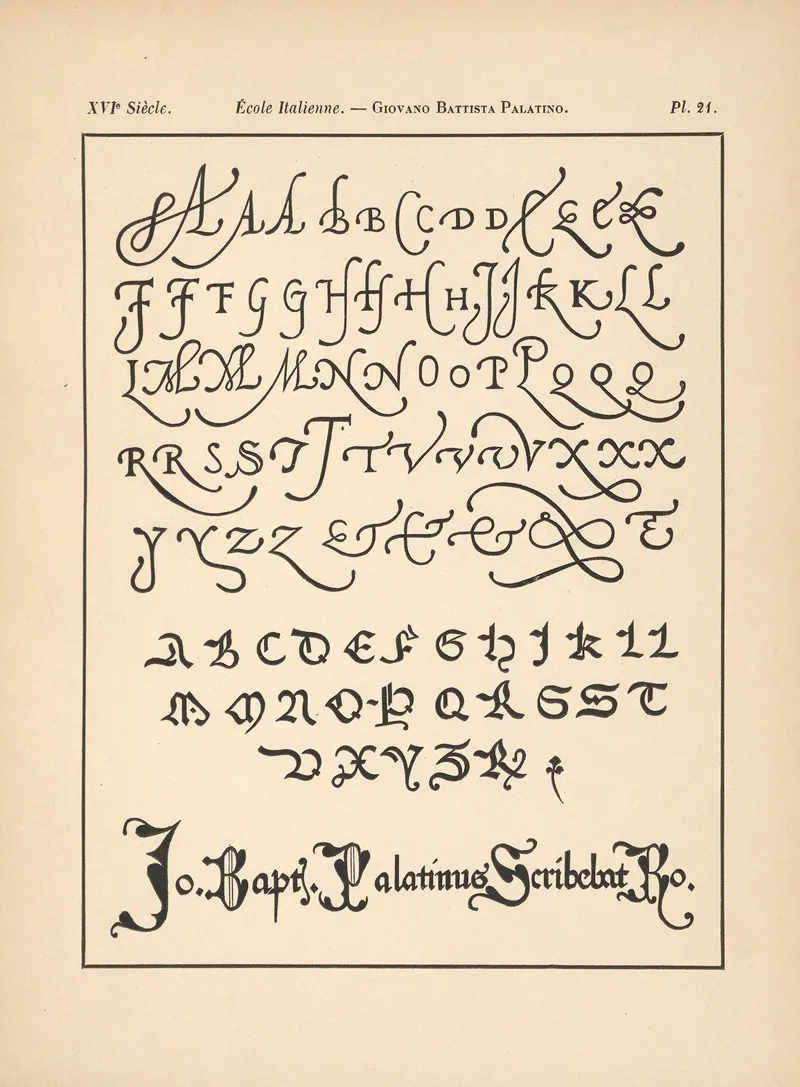 XVIe Siècle. École Italienne. — Giovano Battista Palatino. Pl. 21.
A A A B B C C D D E E E E
F F F G G H H H H J J K K L L
L M M M N N O O P P Q Q Q
R R S S T T T V V V V X X X
Y Y Z Z & & & & &
A B C D E F G H J K L L
M M N O P Q R S S T
V X Y Z R
Jo. Bapt. Palatinus Scribebat Ro.